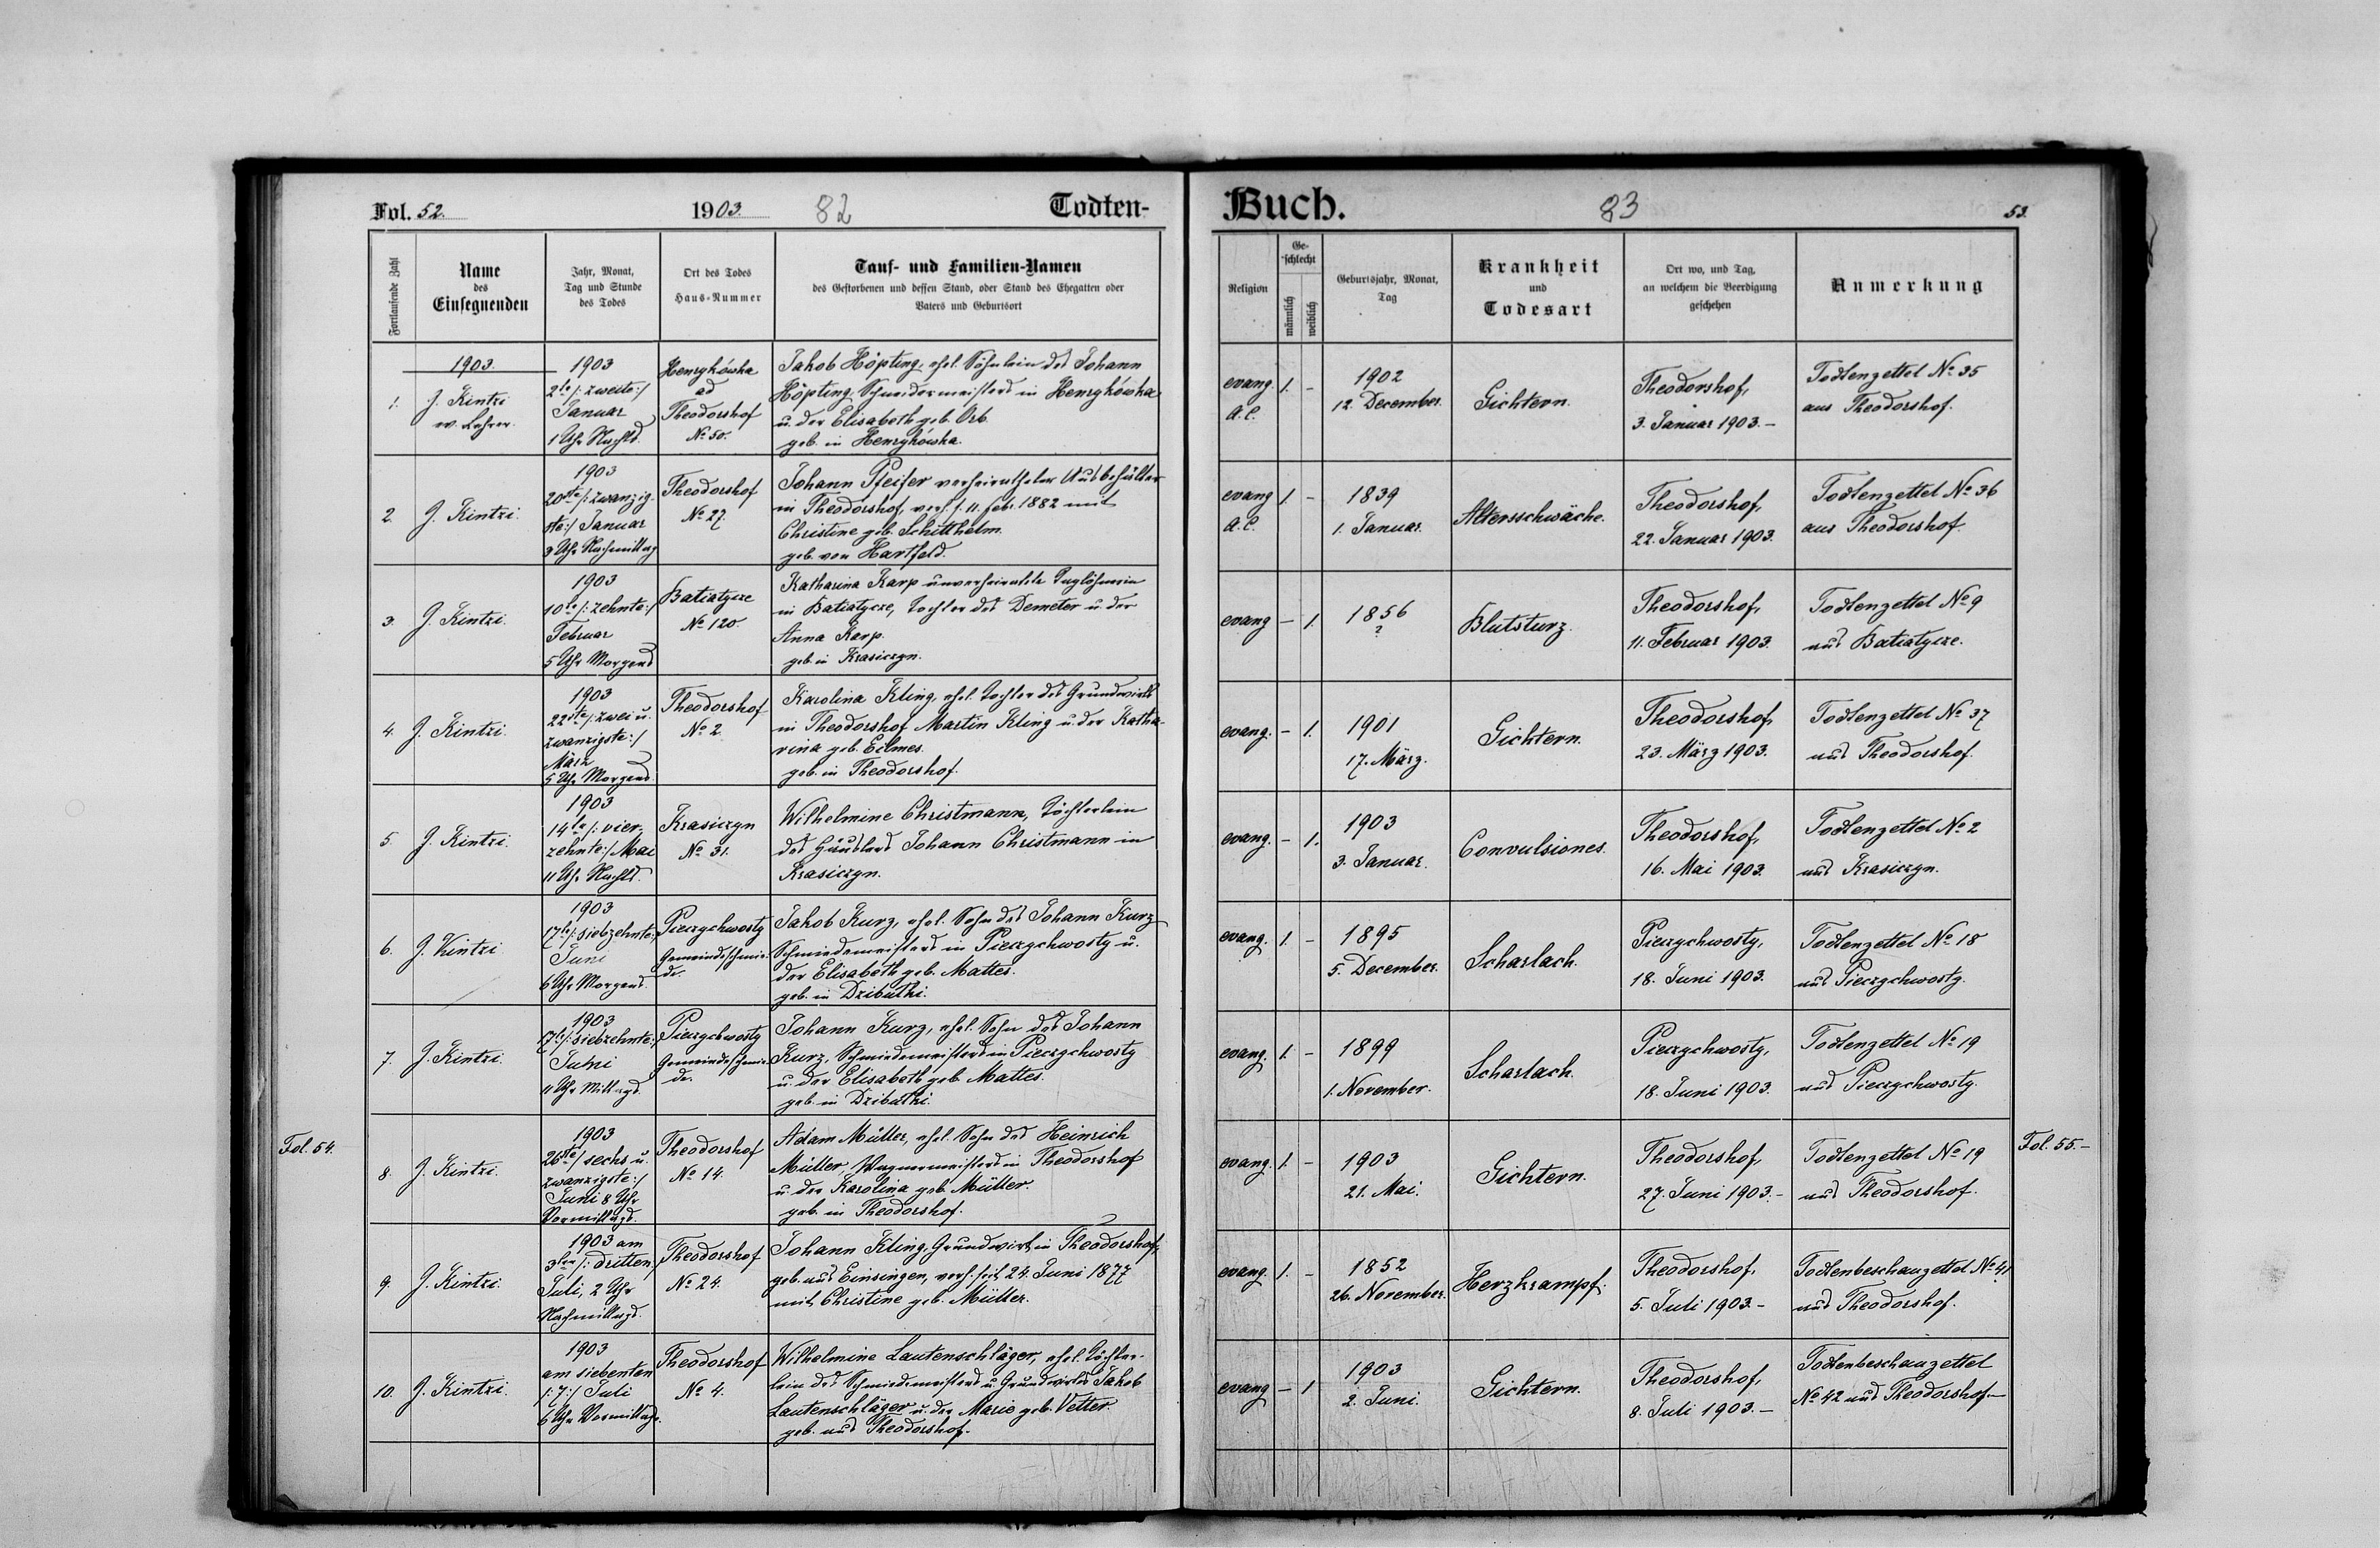 Fol. 52. 1903. 82 Todten-
Fortlaufende Zahl
Name
des
Einsegnenden
Jahr, Monat,
Tag und Stunde
des Todes
Ort des Todes
Haus-Nummer
Tauf- und Familien-Namen
des Gestorbenen und dessen Stand, oder Stand des Ehegatten oder
Vaters und Geburtsort
1.
1903.
J. Kintzi
w. Lehrer.
1903
2te /: zweite :/
Januar
1 Uhr Nachts.
Henrykówka
ad
Theodorshof
No 50.
Jakob Höpting, ehel. Söhnlein des Johann
Höpting, Schneidermeisters in Henrykówka
u. der Elisabeth geb. Orb.
geb. in Henrykówka.
2.
J. Kintzi.
1903
20ste /: zwanzig-
ste :/ Januar
3 Uhr Nachmittag
Theodorshof
No 27.
Johann Pfeifer verheiratheter Ausbehälter
in Theodorshof, verh. s. 11. Febr. 1882 mit
Christine geb. Schitthelm.
geb. von Hartfeld.
3.
J. Kintzi.
1903
10te /: zehnte :/
Februar
5 Uhr Morgens
Batiatycze
No 120.
Katharina Karp unverheiratete Taglöhnerin
in Batiatycze, Tochter des Demeter u. der
Anna Karp.
geb. in Krasiczyn.
4.
J. Kintzi.
1903
22ste /: zwei u.
zwanzigste :/
März
5 Uhr Morgens
Theodorshof
No 2.
Karolina Kling, ehel. Tochter des Grundwirths
in Theodorshof Martin Kling u. der Katha-
rina geb. Eilmes.
geb. in Theodorshof.
5.
J. Kintzi.
1903
14te /: vier-
zehnte :/ Mai
11 Uhr Nachts.
Krasiczyn
No 31.
Wilhelmine Christmann, Töchterlein
des Häuslers Johann Christmann in
Krasiczyn.
6.
J. Kintzi
1903
17te /: siebzehnte :/
Juni
6 Uhr Morgens.
Pieczychwosty
Gemeindeschmie-
de.
Jakob Kurz, ehel. Sohn des Johann Kurz
Schmiedemeisters in Pieczychwosty u.
der Elisabeth geb. Mattes.
geb. in Dzibutki.
7.
J. Kintzi.
1903
17te /: siebzehnte :/
Juni
11 Uhr Mittags.
Pieczychwosty
Gemeindeschmie-
de.
Johann Kurz, ehel. Sohn des Johann
Kurz, Schmiedemeisters in Pieczychwosty
u. der Elisabeth geb. Mattes.
geb. in Dzibutki.
Fol. 54.
8.
J. Kintzi.
1903
26ste / sechs u.
zwanzigste :/
Juni 8 Uhr
Vormittags.
Theodorshof
No 14.
Adam Müller, ehel. Sohn des Heinrich
Müller, Wagnermeisters in Theodorshof
u. der Karolina geb. Müller.
geb. in Theodorshof.
9.
J. Kintzi.
1903 am
3ten /: dritten :/
Juli, 2 Uhr
Nachmittags.
Theodorshof
No 24.
Johann Kling, Grundwirt in Theodorshof,
geb. aus Einsingen, verh. seit 24. Juni 1877
mit Christine geb. Müller.
10.
J. Kintzi.
1903
am siebenten
/: 7 :/ Juli
6 Uhr Vormittags.
Theodorshof
No 4.
Wilhelmine Lautenschläger, ehel. Töchter-
lein des Schmiedemeisters u. Grundwirtes Jakob
Lautenschläger u. der Marie geb. Vetter.
geb. aus Theodorshof.
Buch. 83 53.
Religion
Ge-
schlecht
männlich
weiblich
Geburtsjahr, Monat,
Tag
Krankheit
und
Todesart
Ort wo, und Tag,
an welchem die Beerdigung
geschehen
Anmerkung
evang.
A. C.
1. -
1902
12. December.
Gichtern.
Theodorshof,
3. Januar 1903.-
Todtenzettel No 35
aus Theodorshof.
evang
A. C.
1. -
1839
1. Januar.
Altersschwäche.
Theodorshof,
22. Januar 1903.
Todtenzettel No 36
aus Theodorshof
evang
- 1.
1856
?
Blutsturz.
Theodorshof,
11. Februar 1903.
Todtenzettel No 9
aus Batiatycze.
evang.
- 1.
1901
17. März.
Gichtern.
Theodorshof,
23. März 1903.
Todtenzettel No 37
aus Theodorshof.
evang.
- 1.
1903
3. Januar.
Convulsiones.
Theodorshof,
16. Mai 1903.
Todtenzettel No 2
aus Krasiczyn.
evang.
1. -
1895
5. December.
Scharlach.
Pieczychwosty,
18. Juni 1903.
Todtenzettel No 18
aus Pieczychwosty.
evang.
1. -
1899
1. November.
Scharlach.
Pieczychwosty,
18. Juni 1903.
Todtenzettel No 19
aus Pieczychwosty.
evang.
1. -
1903
21. Mai.
Gichtern.
Theodorshof,
27. Juni 1903.-
Todtenzettel No 19
aus Theodorshof.
Fol. 55.-
evang.
1. -
1852
26. November.
Herzkrampf.
Theodorshof,
5. Juli 1903.-
Todtenbeschauzettel No 41
aus Theodorshof.
evang
- 1
1903
2. Juni.
Gichtern.
Theodorshof,
8. Juli 1903.-
Todtenbeschauzettel
No 42 aus Theodorshof.-